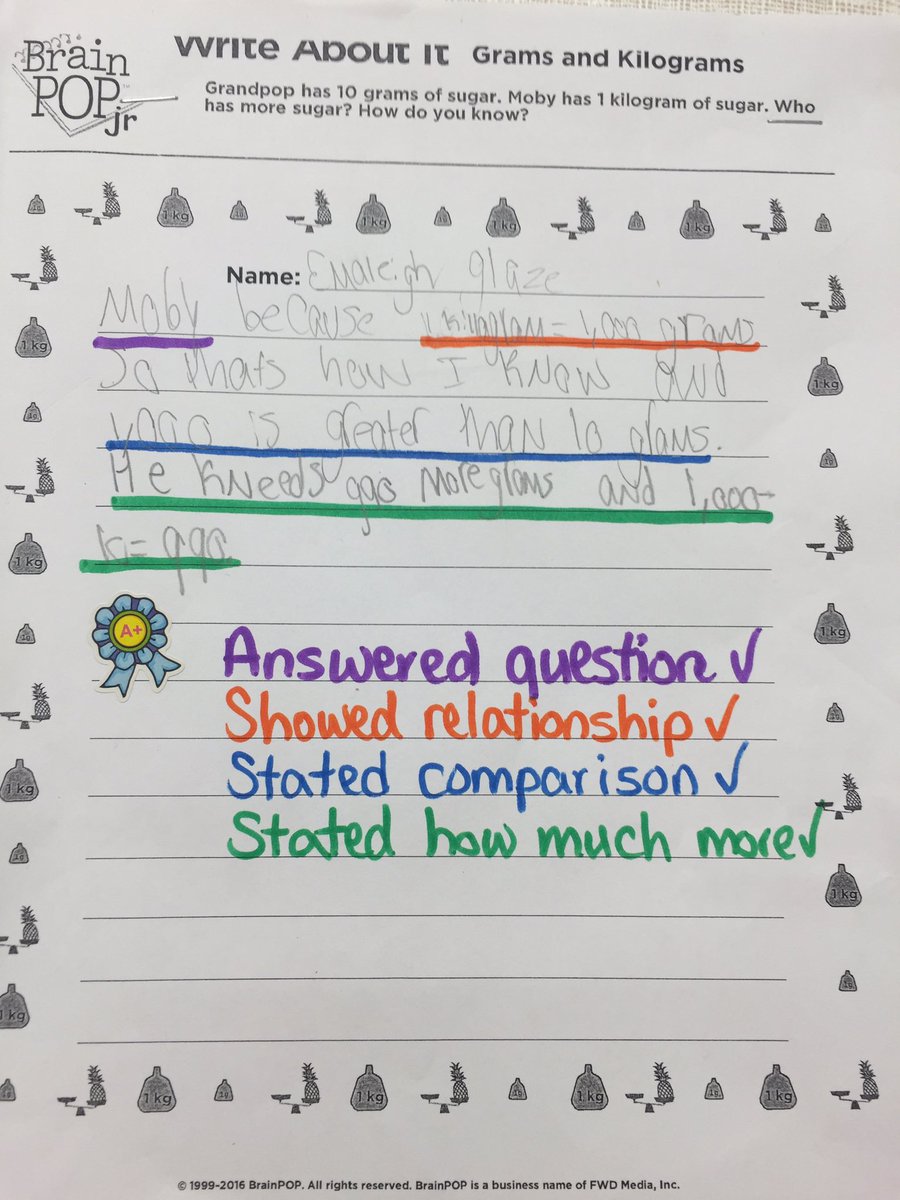 Brain
POP
jr
Write About It Grams and Kilograms
Grandpop has 10 grams of sugar. Moby has 1 kilogram of sugar. Who
has more sugar? How do you know?
Name: Emaleigh glaze
Moby because 1 kilogram = 1,000 grams
So thats how I know and
1,000 is greater than 10 grams.
He kneeds 990 more grams and 1,000-
10= 990.
A+
Answered question ✓
Showed relationship ✓
Stated comparison ✓
Stated how much more ✓
© 1999-2016 BrainPOP. All rights reserved. BrainPOP is a business name of FWD Media, Inc.